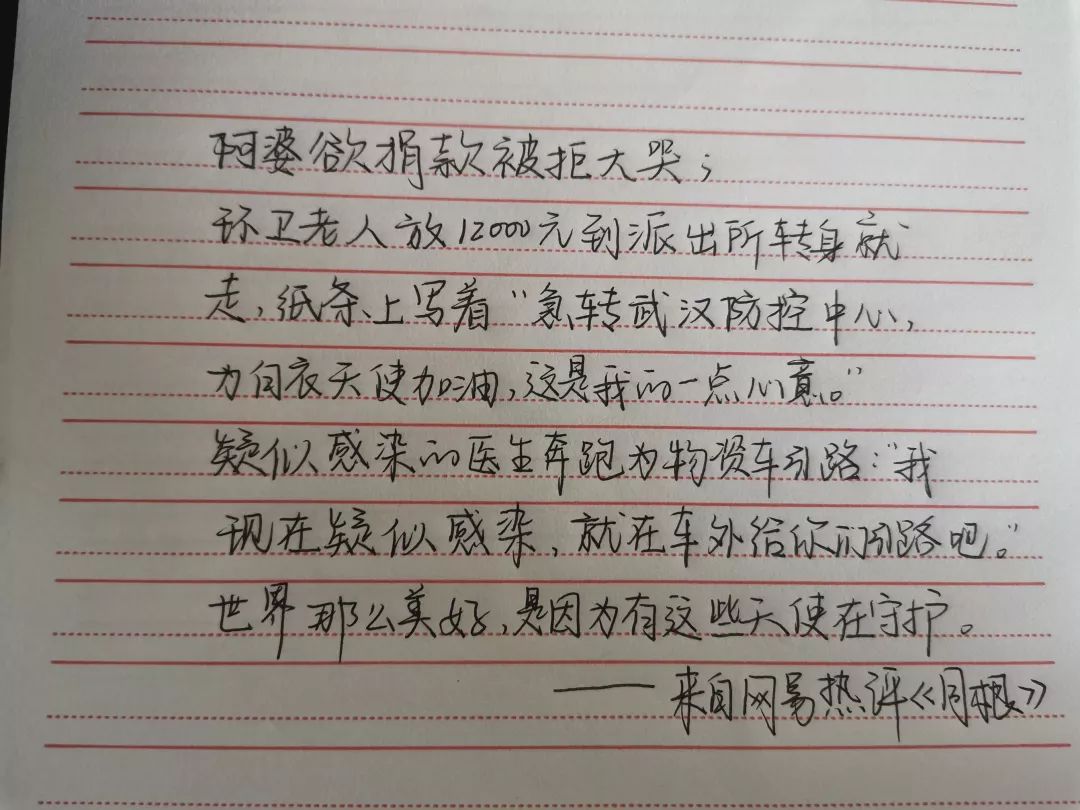 阿婆欲捐款被拒大哭；
环卫老人放12000元到派出所转身就
走，纸条上写着“急转武汉防控中心，
为白衣天使加油，这是我的一点心意。”
疑似感染的医生奔跑为物资车引路：“我
现在疑似感染，就在车外给你们引路吧。”
世界那么美好，是因为有这些天使在守护。
——来自网易热评《同根》